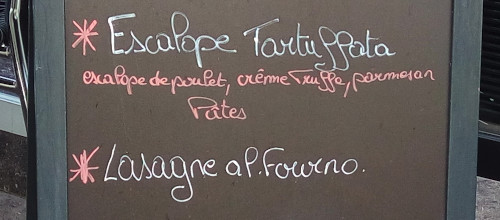 * Escalope Tartuffata
escalope de poulet, crème Truffe, parmesan
Pâtes
* Lasagne al. Fourno.